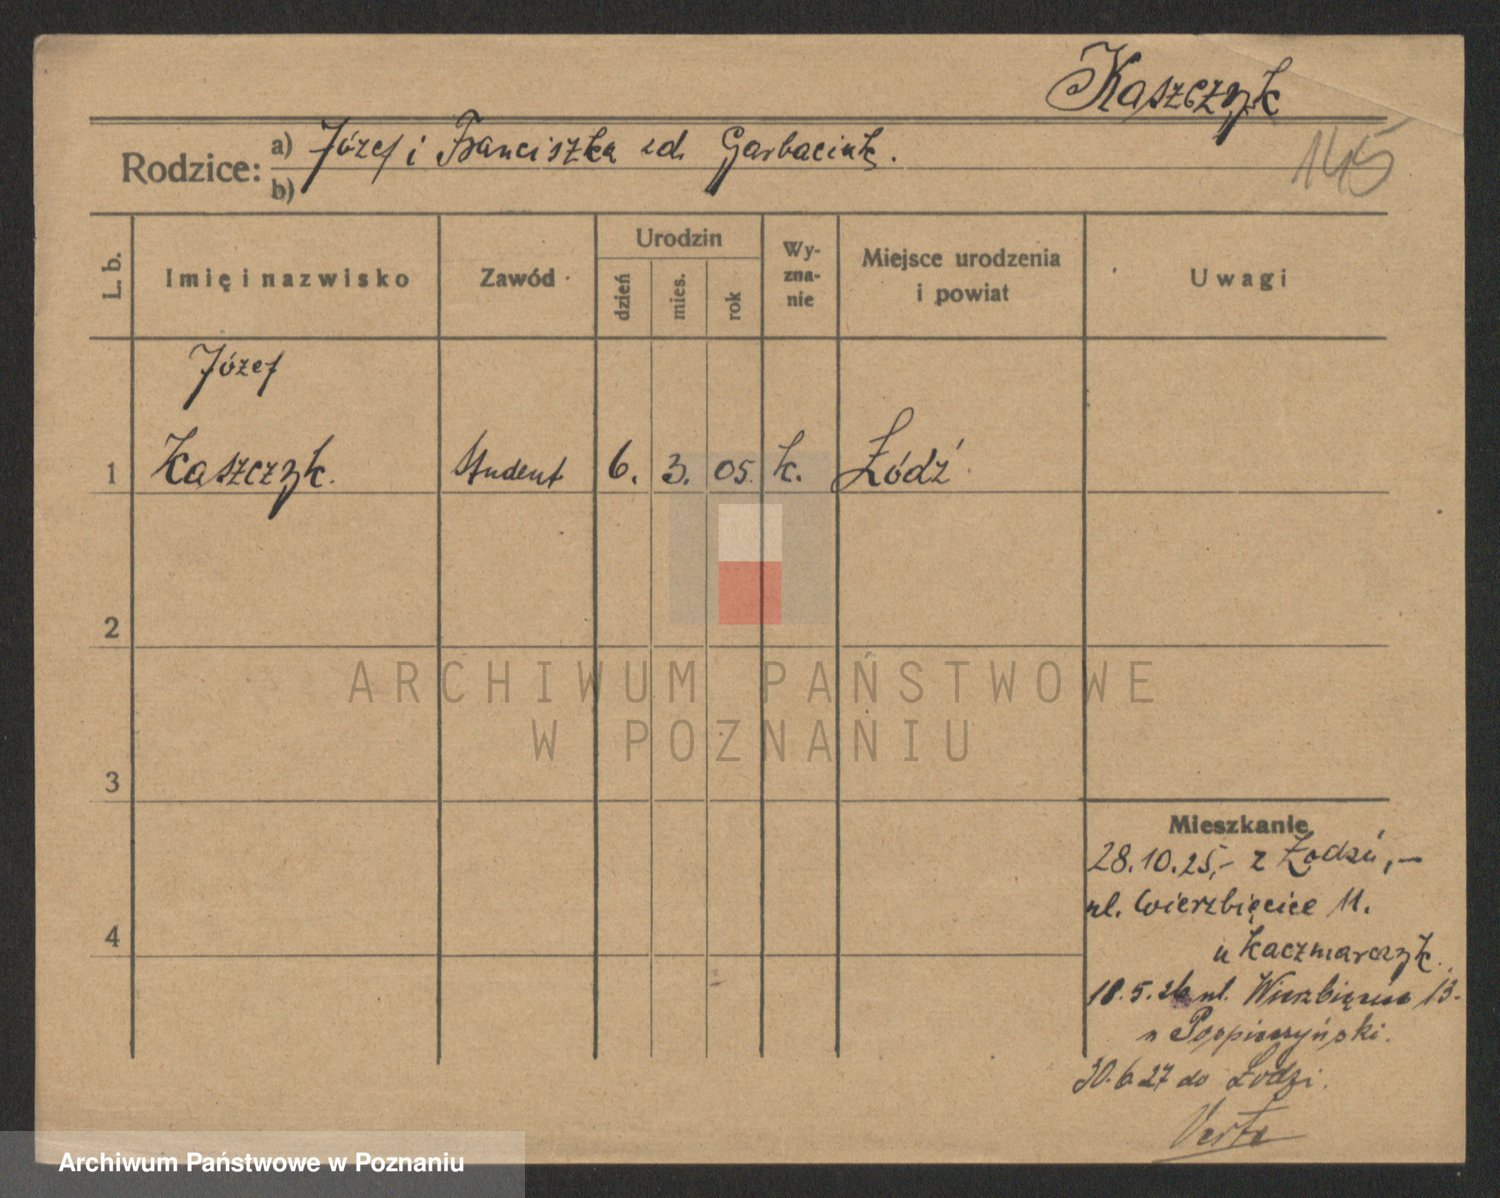 Kaszczyk
145
Rodzice: a) Józef i Franciszka zd. Garbaciak.
b)
L. b.
Imię i nazwisko
Zawód
Urodzin
dzień
mies.
rok
Wy-
zna-
nie
Miejsce urodzenia
i powiat
Uwagi
Józef
1 Kaszczyk. Student 6. 3. 05. k. Łódź
2
3
4
ARCHIWUM PAŃSTWOWE
W POZNANIU
Mieszkanie
28.10.25,- z Łodzi,-
ul. Wierzbięcice 11.
u Kaczmarczyk.
18.5.26 ul. Wierzbięcice 13.
30.6.27 do Łodzi.
Verte
Archiwum Państwowe w Poznaniu